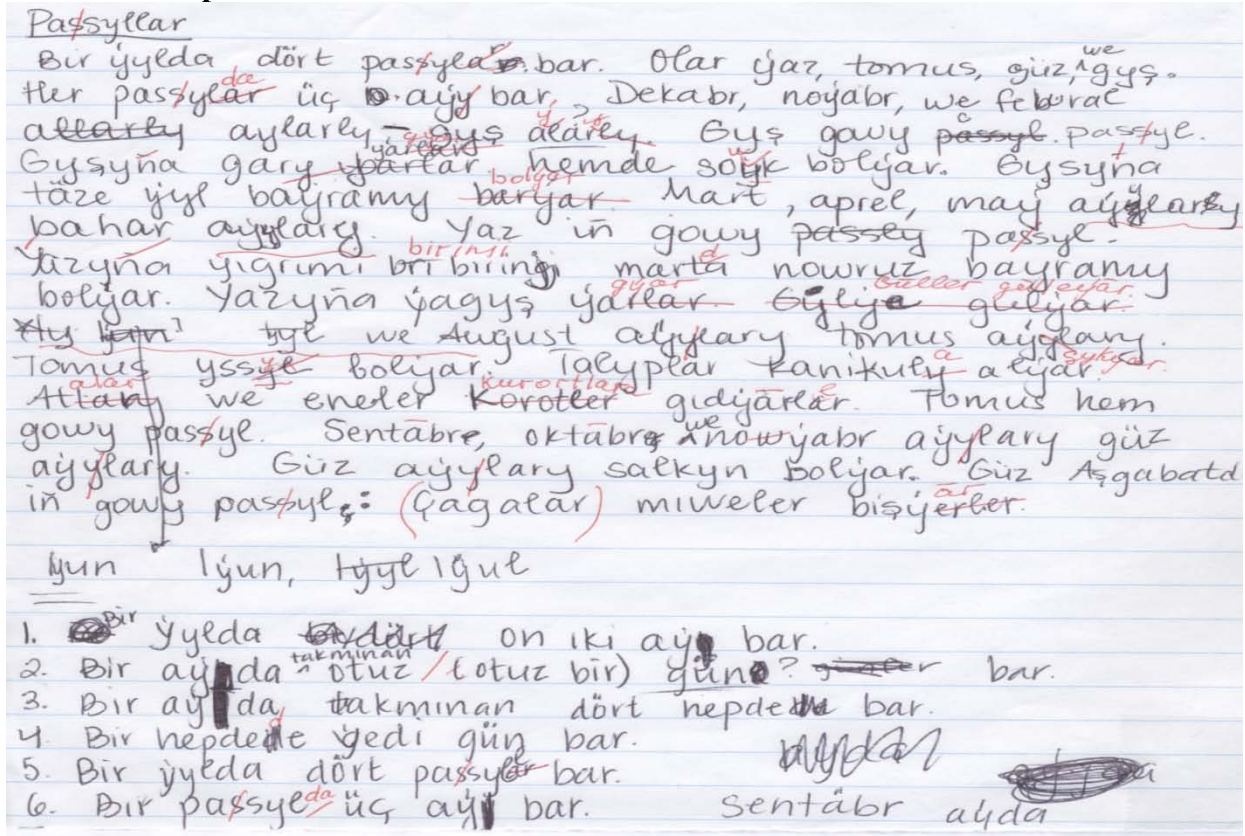 Passyllar
Bir ýylda dört passylar bar. Olar ýaz, tomus, güz, we gyş.
Her passylarda üç aýy bar, Dekabr, noýabr, we febural
aylarly gyş alarly Gyş gowy passyl. passyl.
Gysyňa gary ýarlar hemde sowyk bolýar. Gysyňa
täze ýyl baýramy barýar bolýar. Mart, aprel, maý aýylary
bahar aýylary. Yaz iň gowy passly passyl.
Yazyňa yigrimi bri biring birinji marta nowruz bayramy
bolýar. Yazyňa ýagyş ýarlar gülýar.
we August aýylary tomus aýylary.
Tomus yssyl bolýar. Talyplar kanikuly alýar.
we eneler Korotler kurortlar gidýärlär. Tomus hem
gowy passyl. Sentäbr, oktäbr we nowýabr aýylary güz
aýylary. Güz aýylary salkyn bolýar. Güz Aşgabatd
iň gowy passyl: (Çagalar) miweler bişýerler. är
Iýun, Iýul
1. Bir ýylda dört on iki aý bar.
2. Bir aýda takminan otuz / (otuz bir) gün? bar.
3. Bir aýda, takminan dört hepde bar.
4. Bir hepdede ýedi gün bar.
5. Bir ýylda dört passyl bar.
6. Bir passylda üç aý bar. Sentäbr aýda